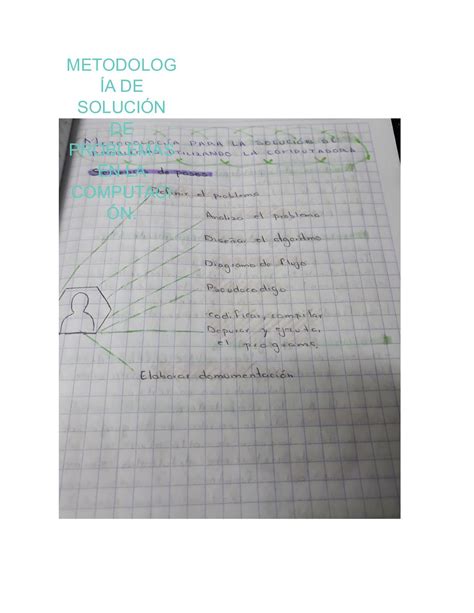 METODOLOG
ÍA DE
SOLUCIÓN
DE
PROBLEMAS
EN LA
COMPUTACI
ÓN
PARA LA SOLUCION DE
UTILIZANDO LA COMPUTADORA
de pasos
Definir el problema
Analiza el problema
Diseñar el algoritmo
Diagrama de flujo
Pseudocodigo
codificar, compilar
Depurar y ejecutar
el programa.
Elaborar documentación